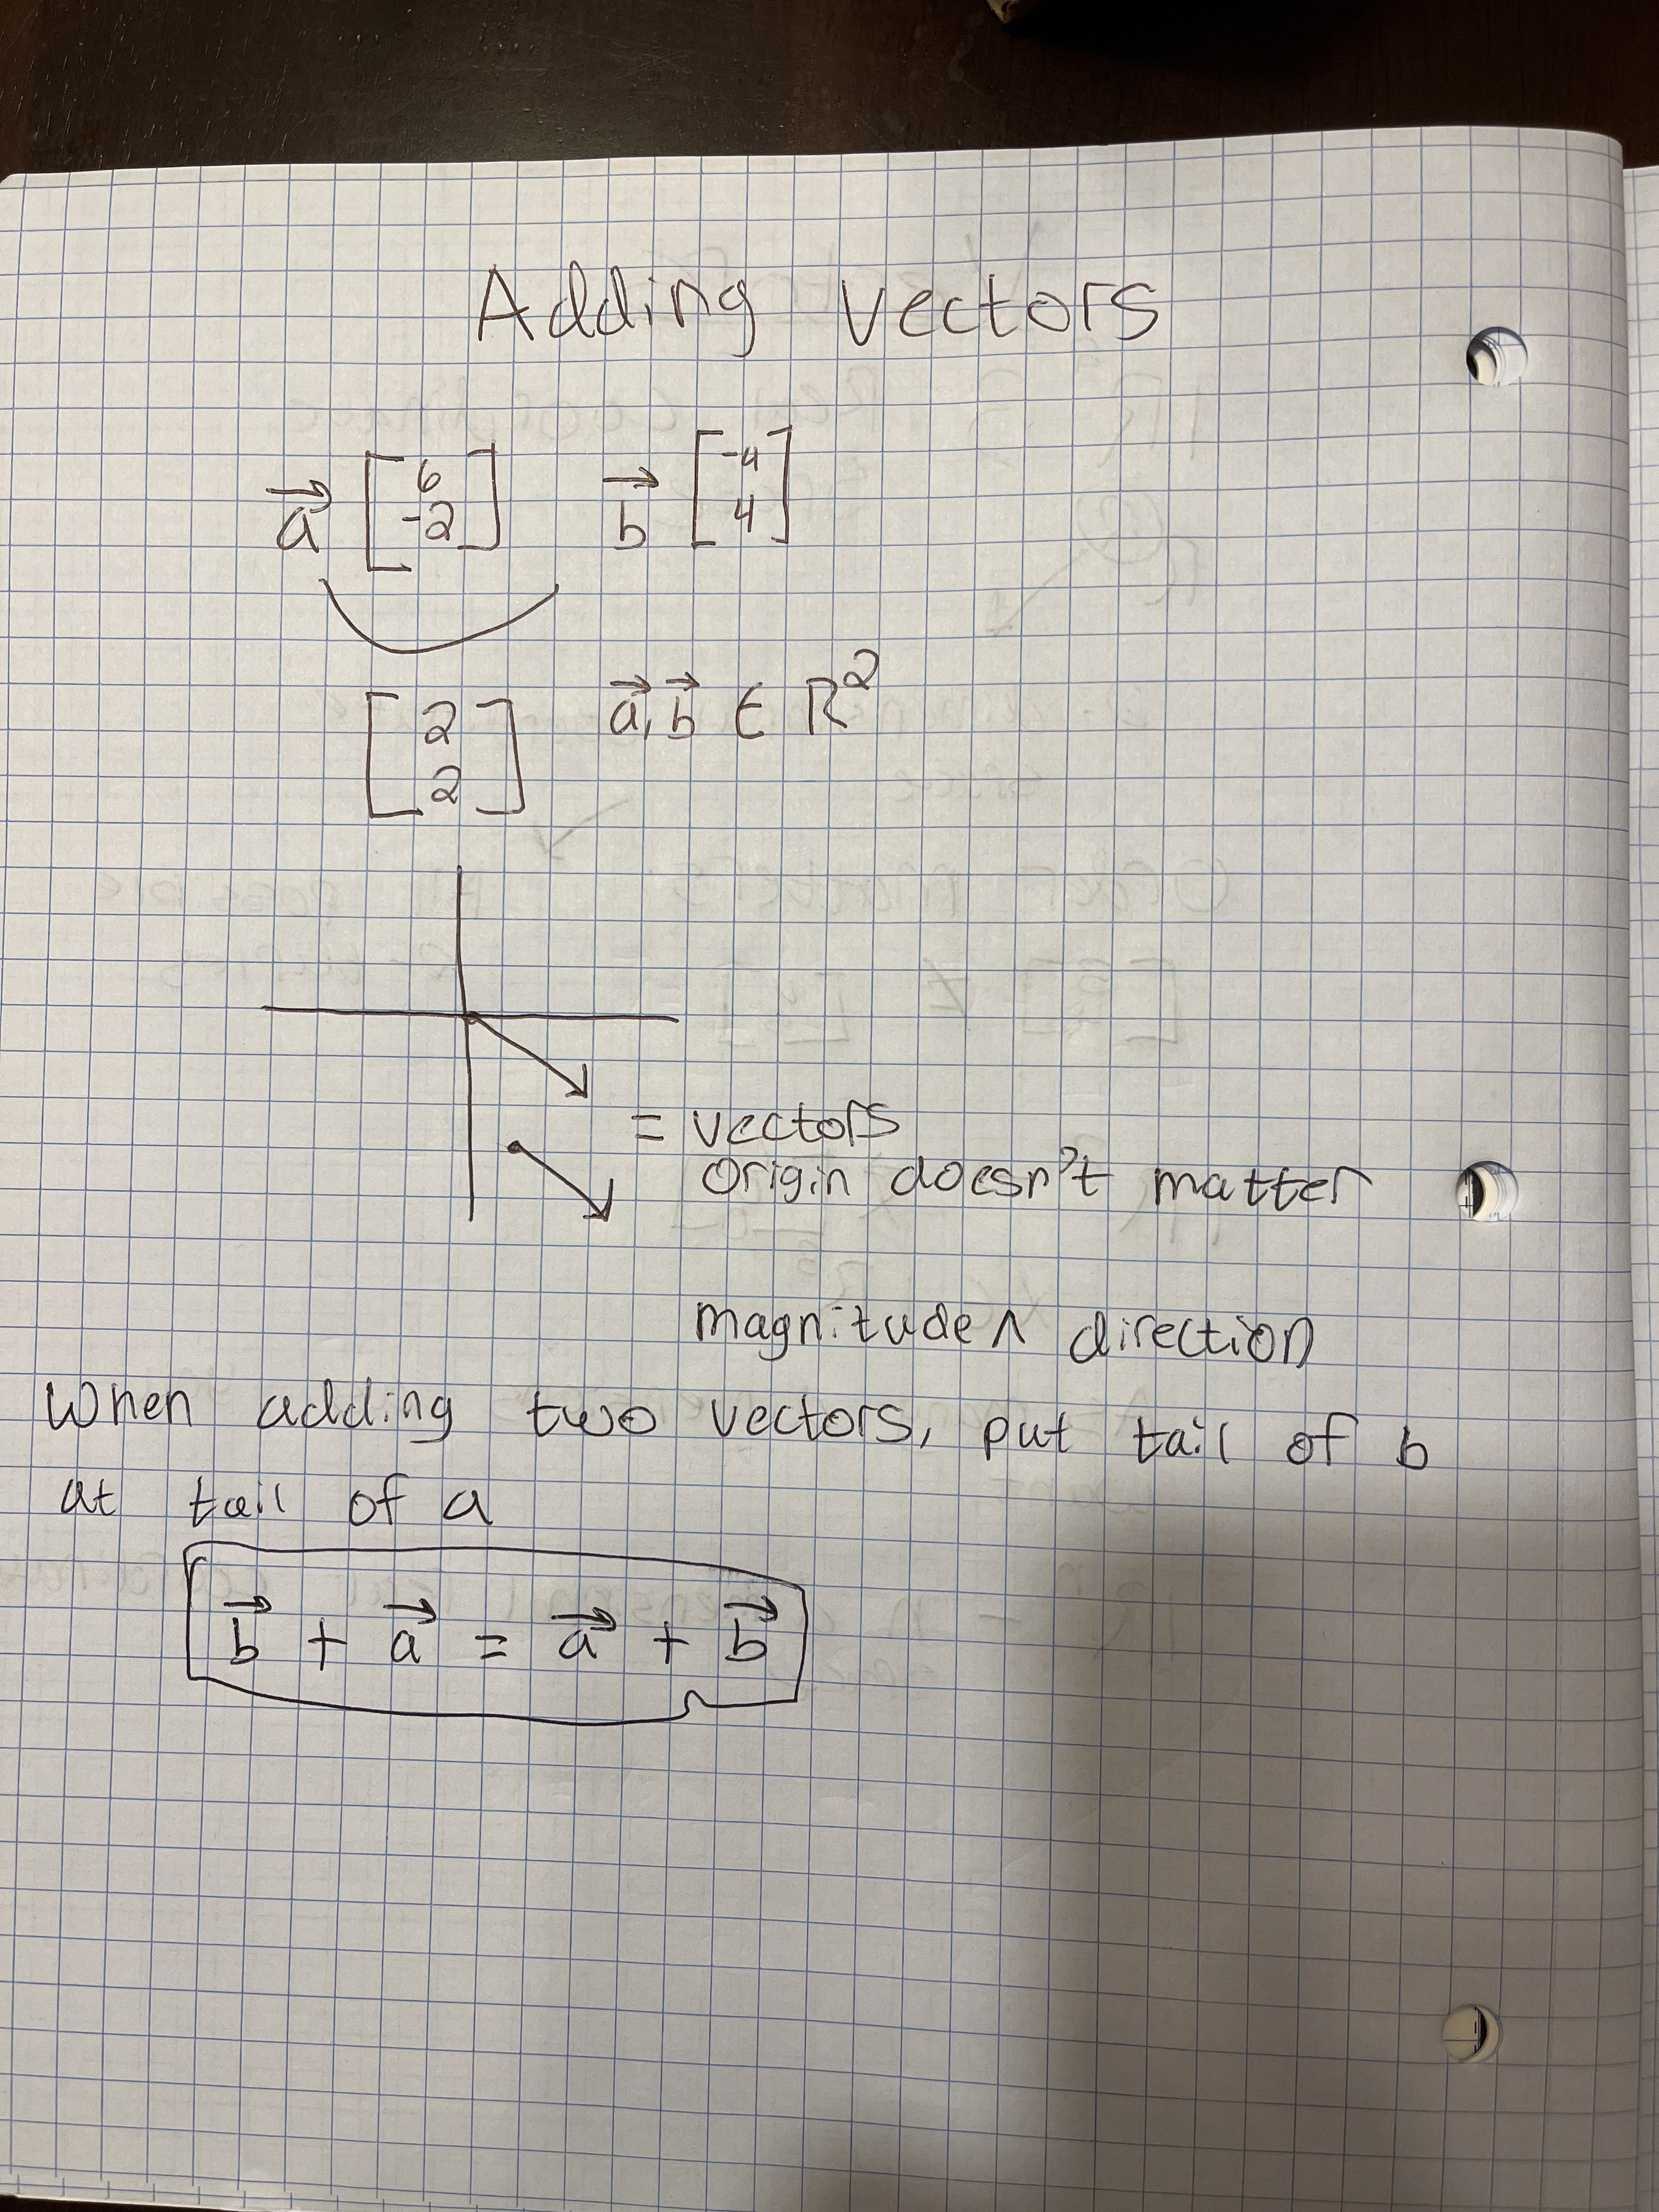 Adding vectors
a⃗ [6 -2] b⃗ [-4 4]
[2 2] a⃗, b⃗ ∈ R²
= vectors
origin doesn't matter
magnitude ∧ direction
When adding two vectors, put tail of b
at tail of a
b⃗ + a⃗ = a⃗ + b⃗